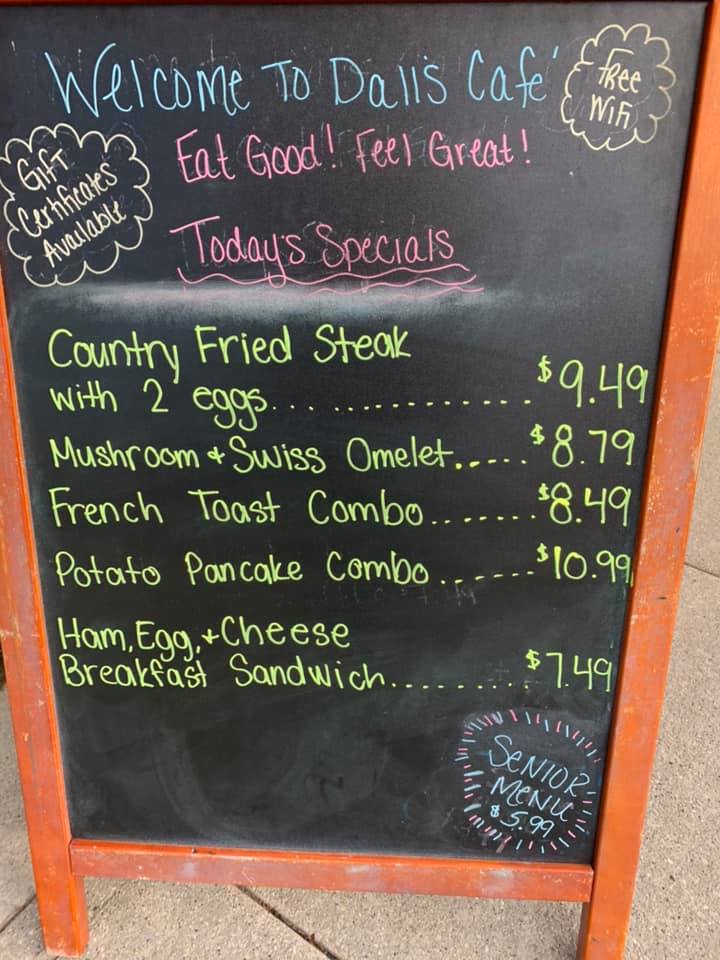 Welcome To Dalis Café
Free
WiFi
Eat Good! Feel Great!
Gift
Certificates
Available
Today's Specials
Country Fried Steak
with 2 eggs.................. $9.49
Mushroom + Swiss Omelet...... $8.79
French Toast Combo........ $8.49
Potato Pancake Combo....... $10.99
Ham, Egg, + Cheese
Breakfast Sandwich.......... $7.49
Senior
Menu
$5.99